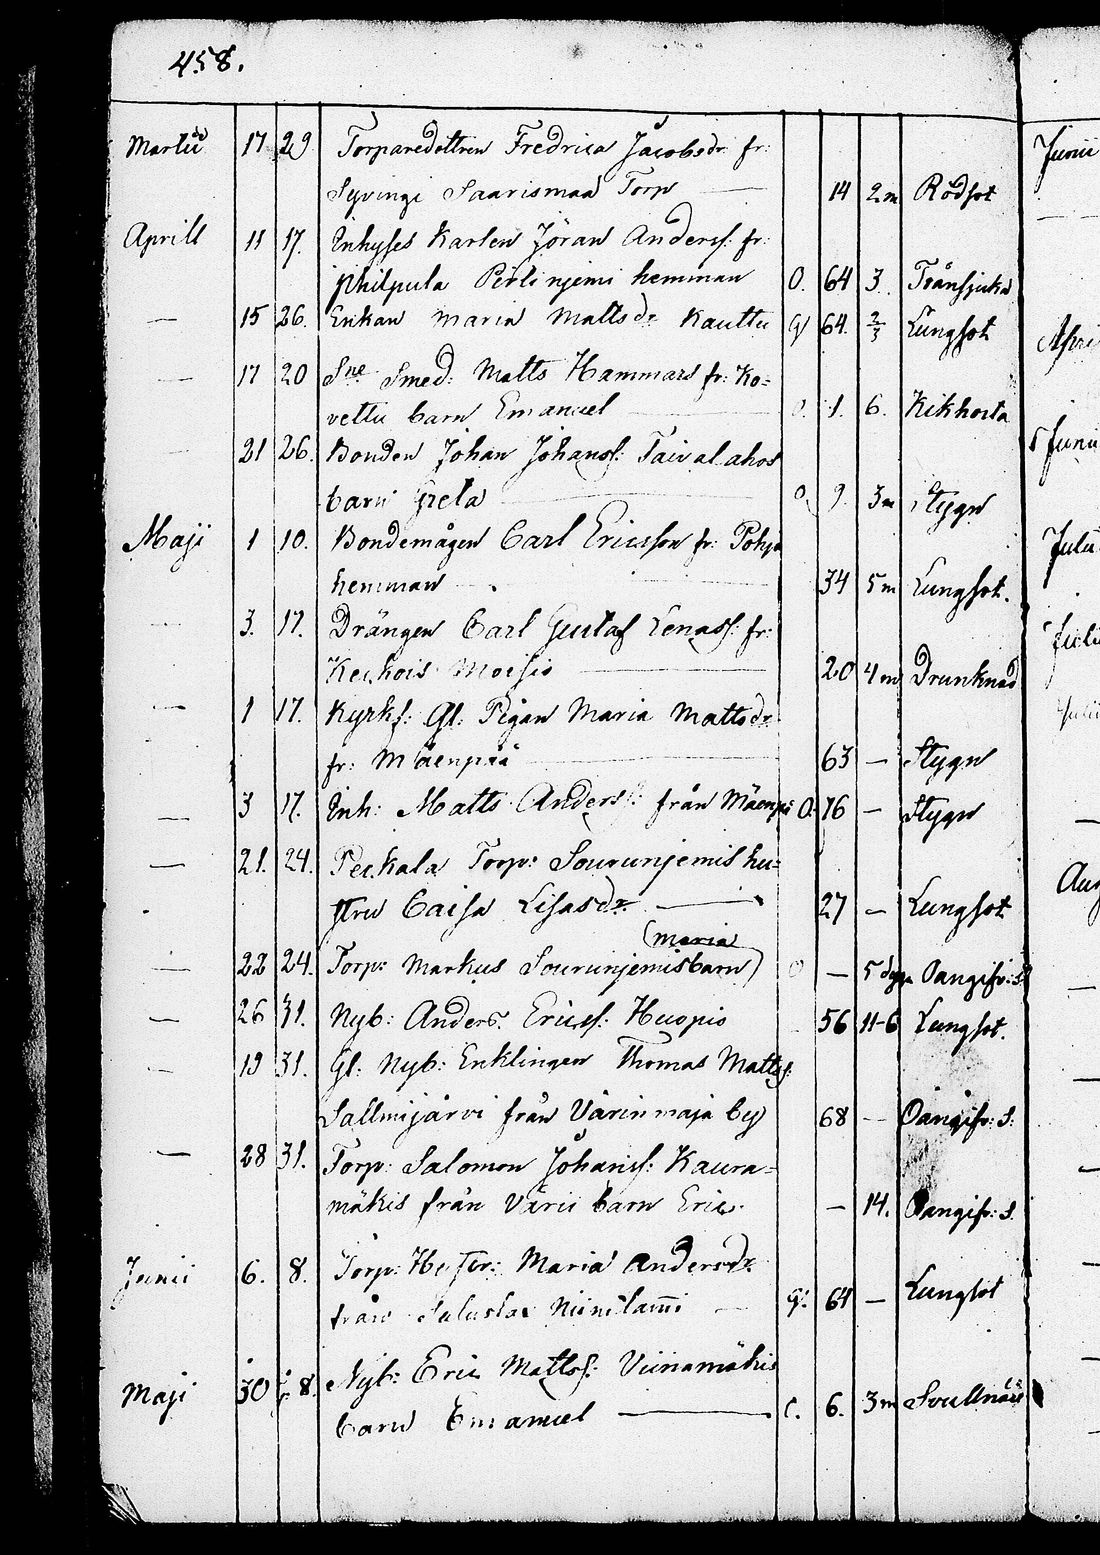 458.
Martii 17 29 Torparedottren Fredrica Jacobsdr fr: Junii
Syvingi Saarismaa Torp — 14 2m Rödsot
Aprill 11 17. Inhyses Karlen Jöran Anderss: fr:
philpula Perlinjemi hemman O. 64 3. Trånsjuka
— 15 26. Enkan Maria Mattsdr Kauttu G 64. 2/3 Lungsot
— 17 20 Sne Smed: Matts Hammars fr: Ko=
vettu barn Emanuel — O. 1. 6. Kikhosta
— 21 26. Bonden Johan Johanss: Taivalahos
barn Greta — O 9. 3m Stygn
Maji 1 10. Bondemågen Carl Ericsson fr: Pohja
hemman 34 5m Lungsot.
— 3. 17. Drängen Carl Gustaf Lenass: fr:
Keckois Moisio — 20 4m Drunknad
— 1 17. Kyrks: Gl: Pigan Maria Mattsdr
fr: Mäenpää — 63 — Stygn
— 3 17. Inh: Matts Anderss: från Mäenpä O. 76 — Stygn
— 21. 24. Peckala Torp: Sourunjemis hu=
stru Caisa Lisasdr — 27 — Lungsot
(maria
— 22 24. Torp: Markus Sourunjemis barn) O — 5 dygn Oangifv: s:
— 26 31. Nyb: Anders Ericss: Huopio 56 11-6 Lungsot.
— 19 31. Gl: Nyb: Enklingen Thomas Mattss:
Sallmijärvi från Värinmaja by 68 — Oangifv: s:
— 28 31. Torp: Salomon Johanss: Kaura=
mäkis från Värii barn Eric — 14. Oangifv: s.
Junii 6. 8. Torp: Hustr: Maria Andersdr
från Niinilami — G. 64 — Lungsot
Maji 30 8. Nyb: Eric Mattss: Viinamäkis
barn Emanuel — 6. 3m Svullnad